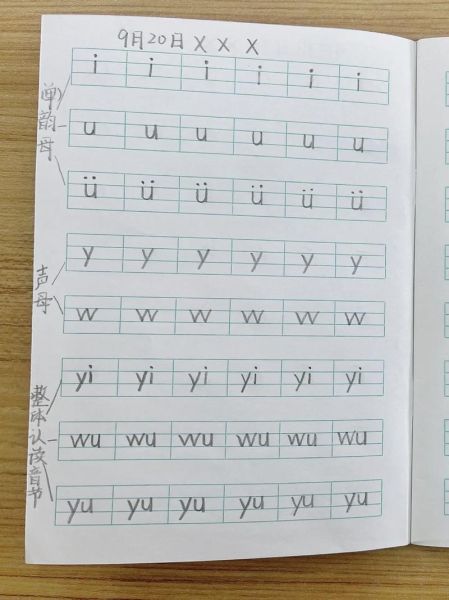 9月20日 X X X
单韵母
i i i i i i
u u u u u u
ü ü ü ü ü ü
声母
y y y y y y
w w w w w w
整体认读音节
yi yi yi yi yi yi
wu wu wu wu wu wu
yu yu yu yu yu yu